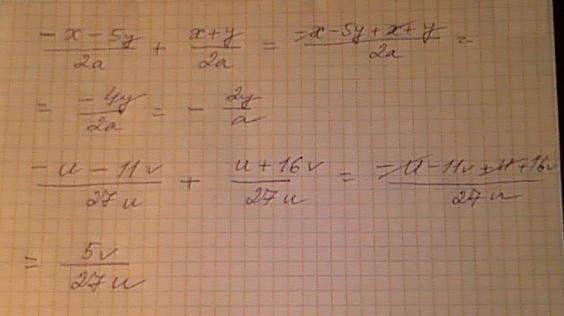 (-x-5y)/2a + (x+y)/2a = (-x-5y+x+y)/2a =
= (-4y)/2a = - 2y/a
(-u-11v)/27u + (u+16v)/27u = (-u-11v+u+16v)/27u
= 5v/27u